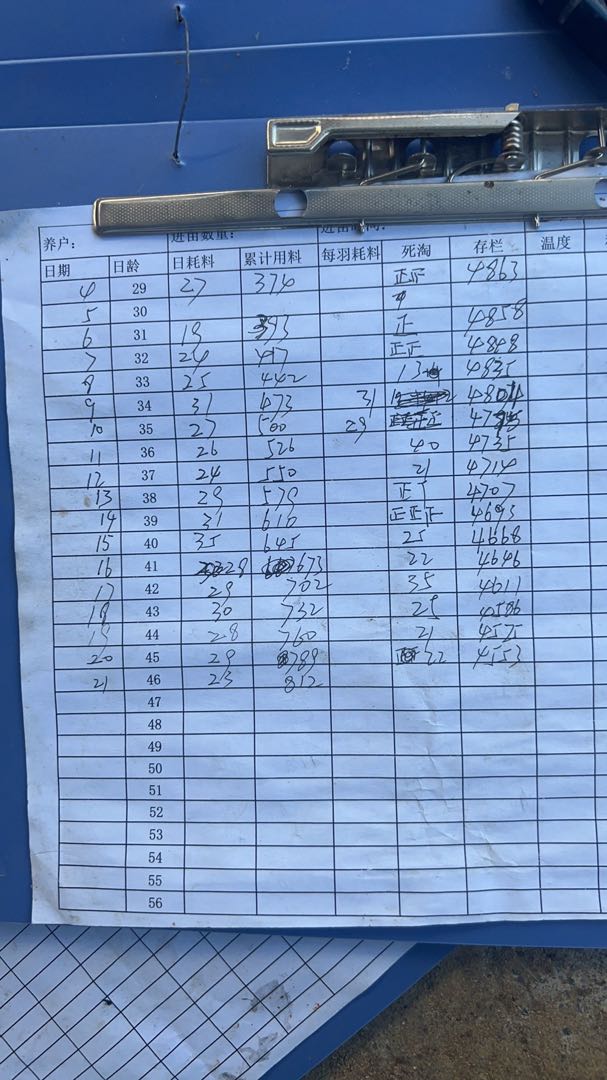 养户： 进苗数量： 进苗时间：
日期 日龄 日耗料 累计用料 每羽耗料 死淘 存栏 温度
4 29 27 374 正正 4863
5 30
6 31 19 393 正 4858
7 32 24 417 正正 4848
8 33 25 442 13 4835
9 34 31 473 31 4804
10 35 27 500 29
11 36 26 526 40 4735
12 37 24 550 21 4714
13 38 29 579 正丅 4707
14 39 31 610 正正正 4693
15 40 35 645 25 4668
16 41 28 673 22 4646
17 42 29 702 35 4611
18 43 30 732 25
19 44 28 760 21 4575
20 45 29 789 22 4553
21 46 23 812
47
48
49
50
51
52
53
54
55
56